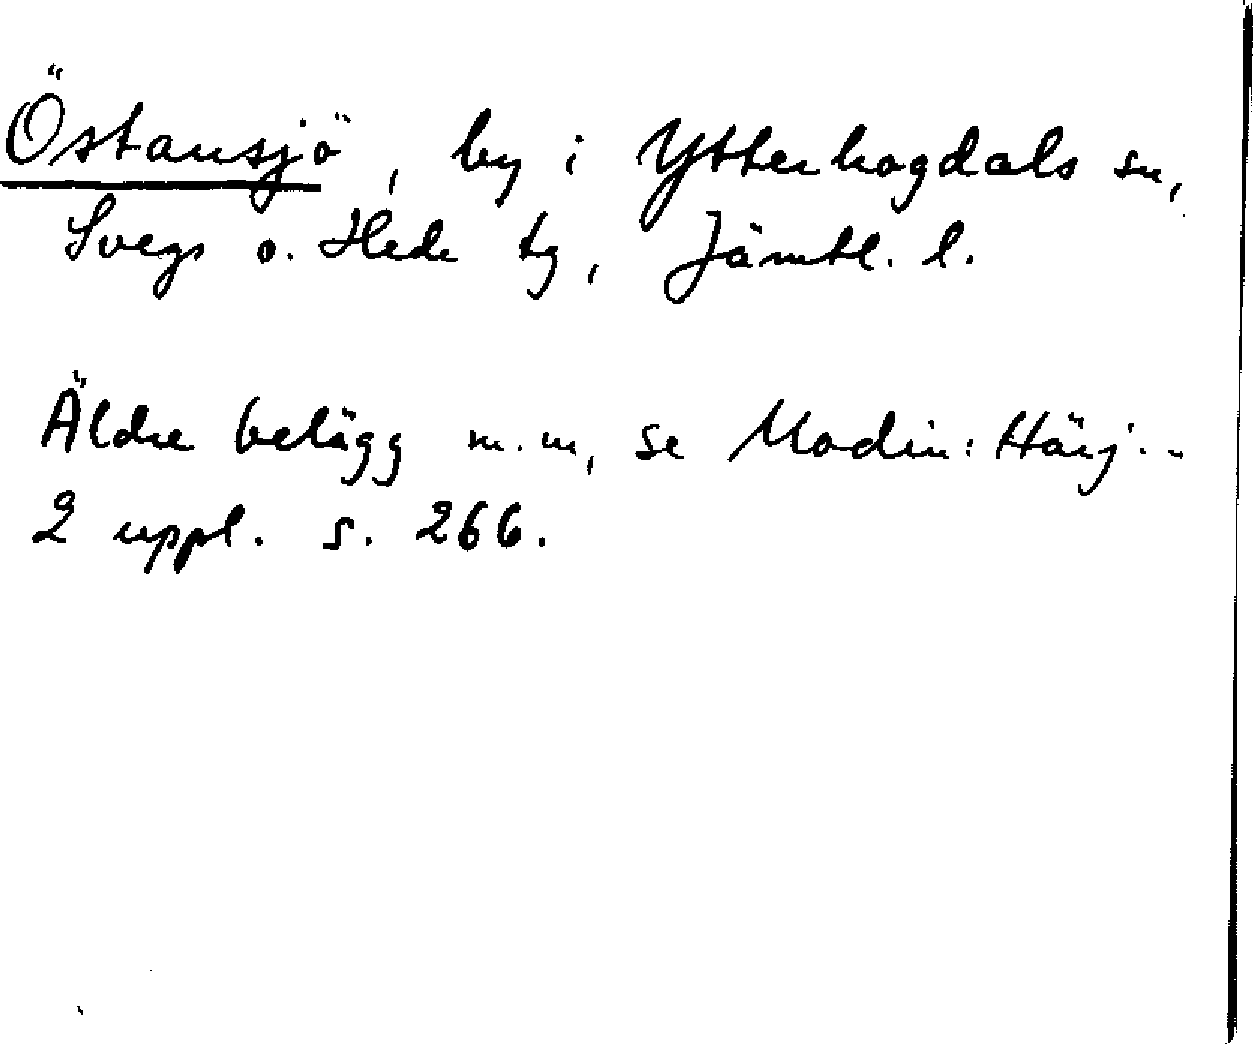 Östansjö, by i Ytterhogdals sn,
Svegs o. Hede tg, Jämtl. l.
Äldre belägg m.m, se Modin: Härj..
2 uppl. s. 266.